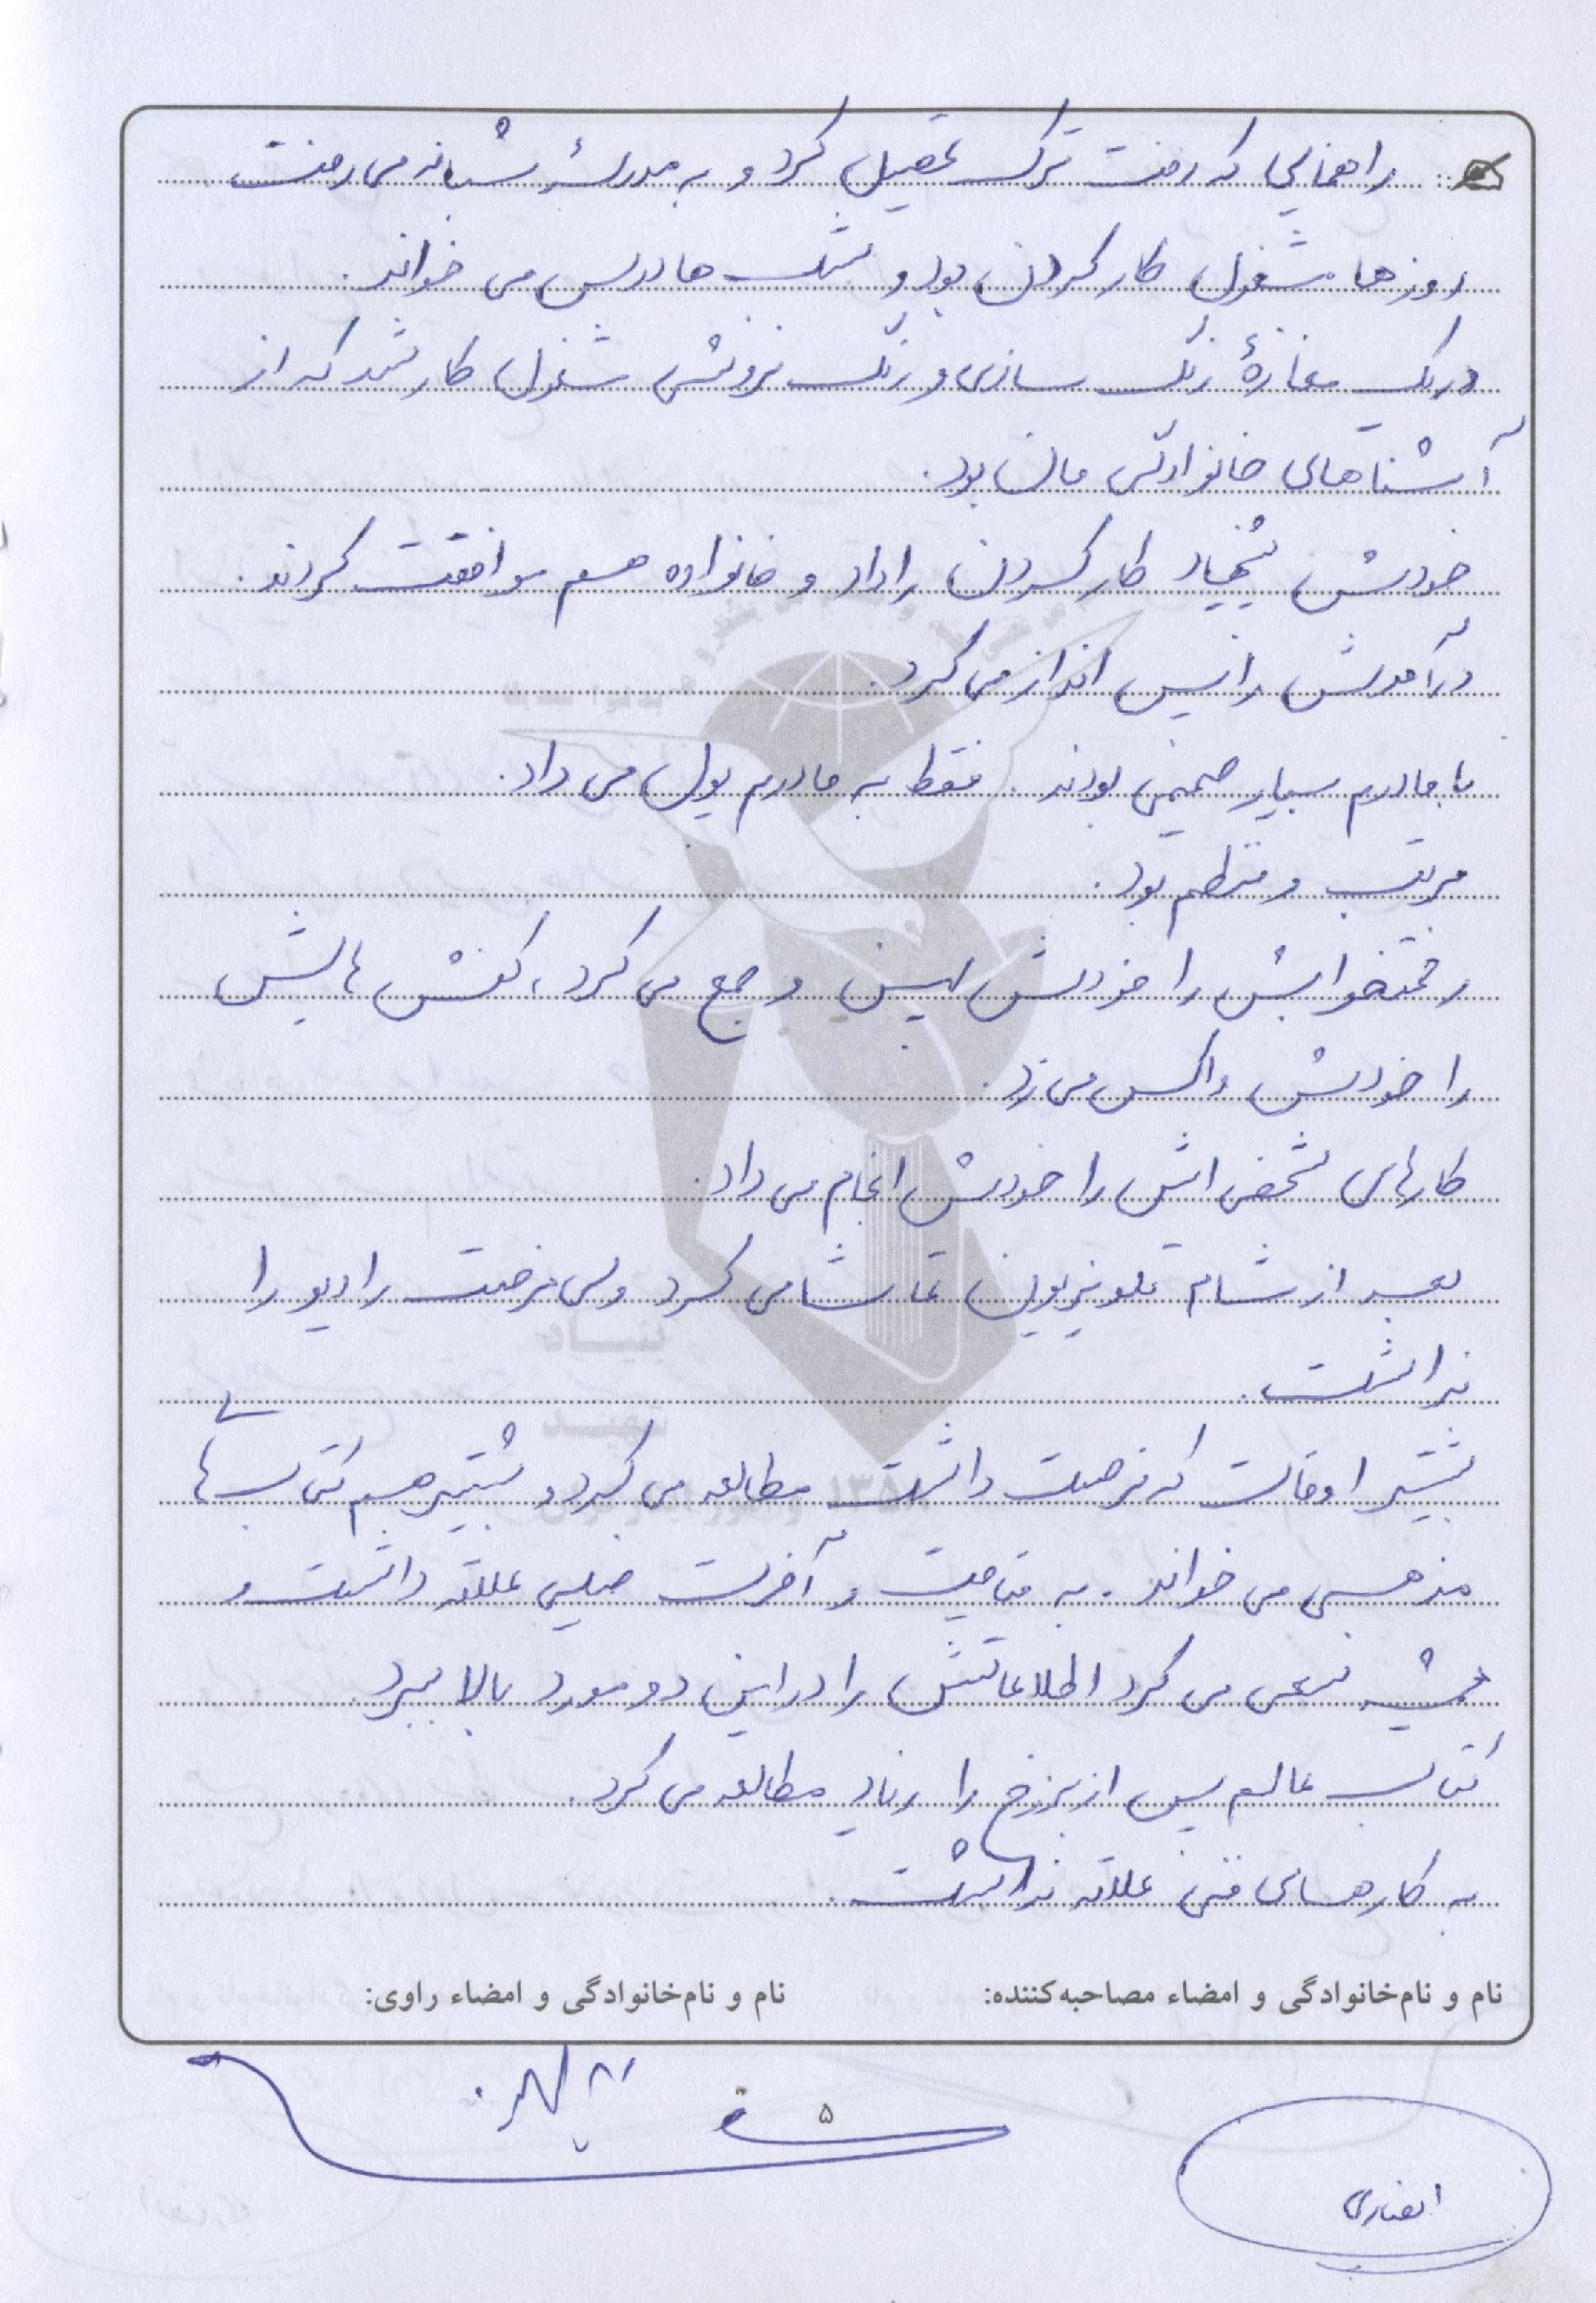 راهنمایی که رفت ترک تحصیل کرد و به مدرسهٔ شبانه می رفت
روزها مشغول کار کردن بود و شب ها درس می خواند.
در یک مغازهٔ رنگ سازی و رنگ فروشی مشغول کار شد که از
آشناهای خانوادگی مان بود.
خودش پیشنهاد کار کردن را داد و خانواده هم موافقت کردند.
درآمدش را پس انداز می کرد.
با مادرم بسیار صمیمی بودند. فقط به مادرم پول می داد.
مرتب و منظم بود.
رختخوابش را خودش پهن و جمع می کرد، کفش هایش
را خودش واکس می زد.
کارهای شخصی اش را خودش انجام می داد.
بعد از شام تلویزیون تماشا می کرد ولی فرصت رادیو را
نداشت.
بیشتر اوقات که فرصت داشت مطالعه می کرد و بیشتر هم کتاب های
مذهبی می خواند. به قیامت و آخرت خیلی علاقه داشت و
همیشه سعی می کرد اطلاعاتش را در این دو مورد بالا ببرد.
کتاب عالم پس از برزخ را زیاد مطالعه می کرد.
به کارهای فنی علاقه نداشت.
نام و نام‌خانوادگی و امضاء مصاحبه‌کننده:
نام و نام‌خانوادگی و امضاء راوی:
۵
انصاری
بنیاد
شهید